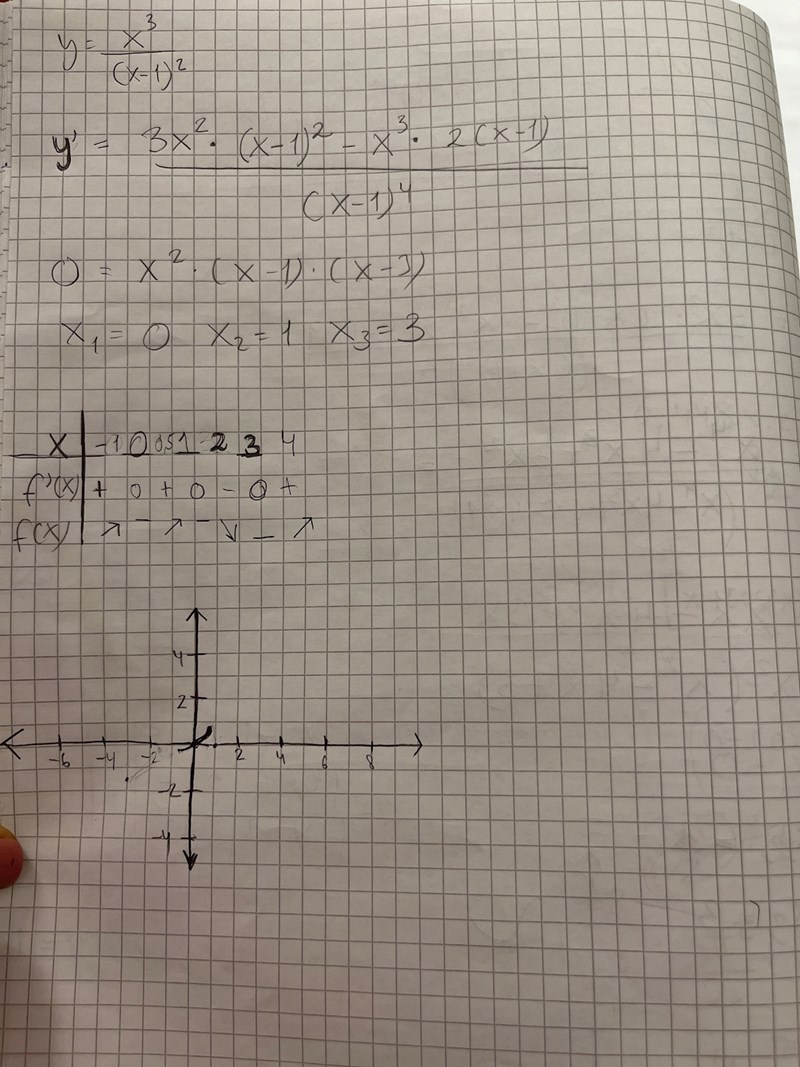 y = x³/(x-1)²
y' = 3x² · (x-1)² - x³ · 2(x-1) / (x-1)⁴
0 = x² · (x-1) · (x-3)
x₁ = 0 x₂ = 1 x₃ = 3
x | -1 0 0,5 1 2 3 4
f'(x) | + 0 + 0 - 0 +
f(x) | ↗ — ↗ — ↘ — ↗
4
2
-6 -4 -2 2 4 6 8
-2
-4